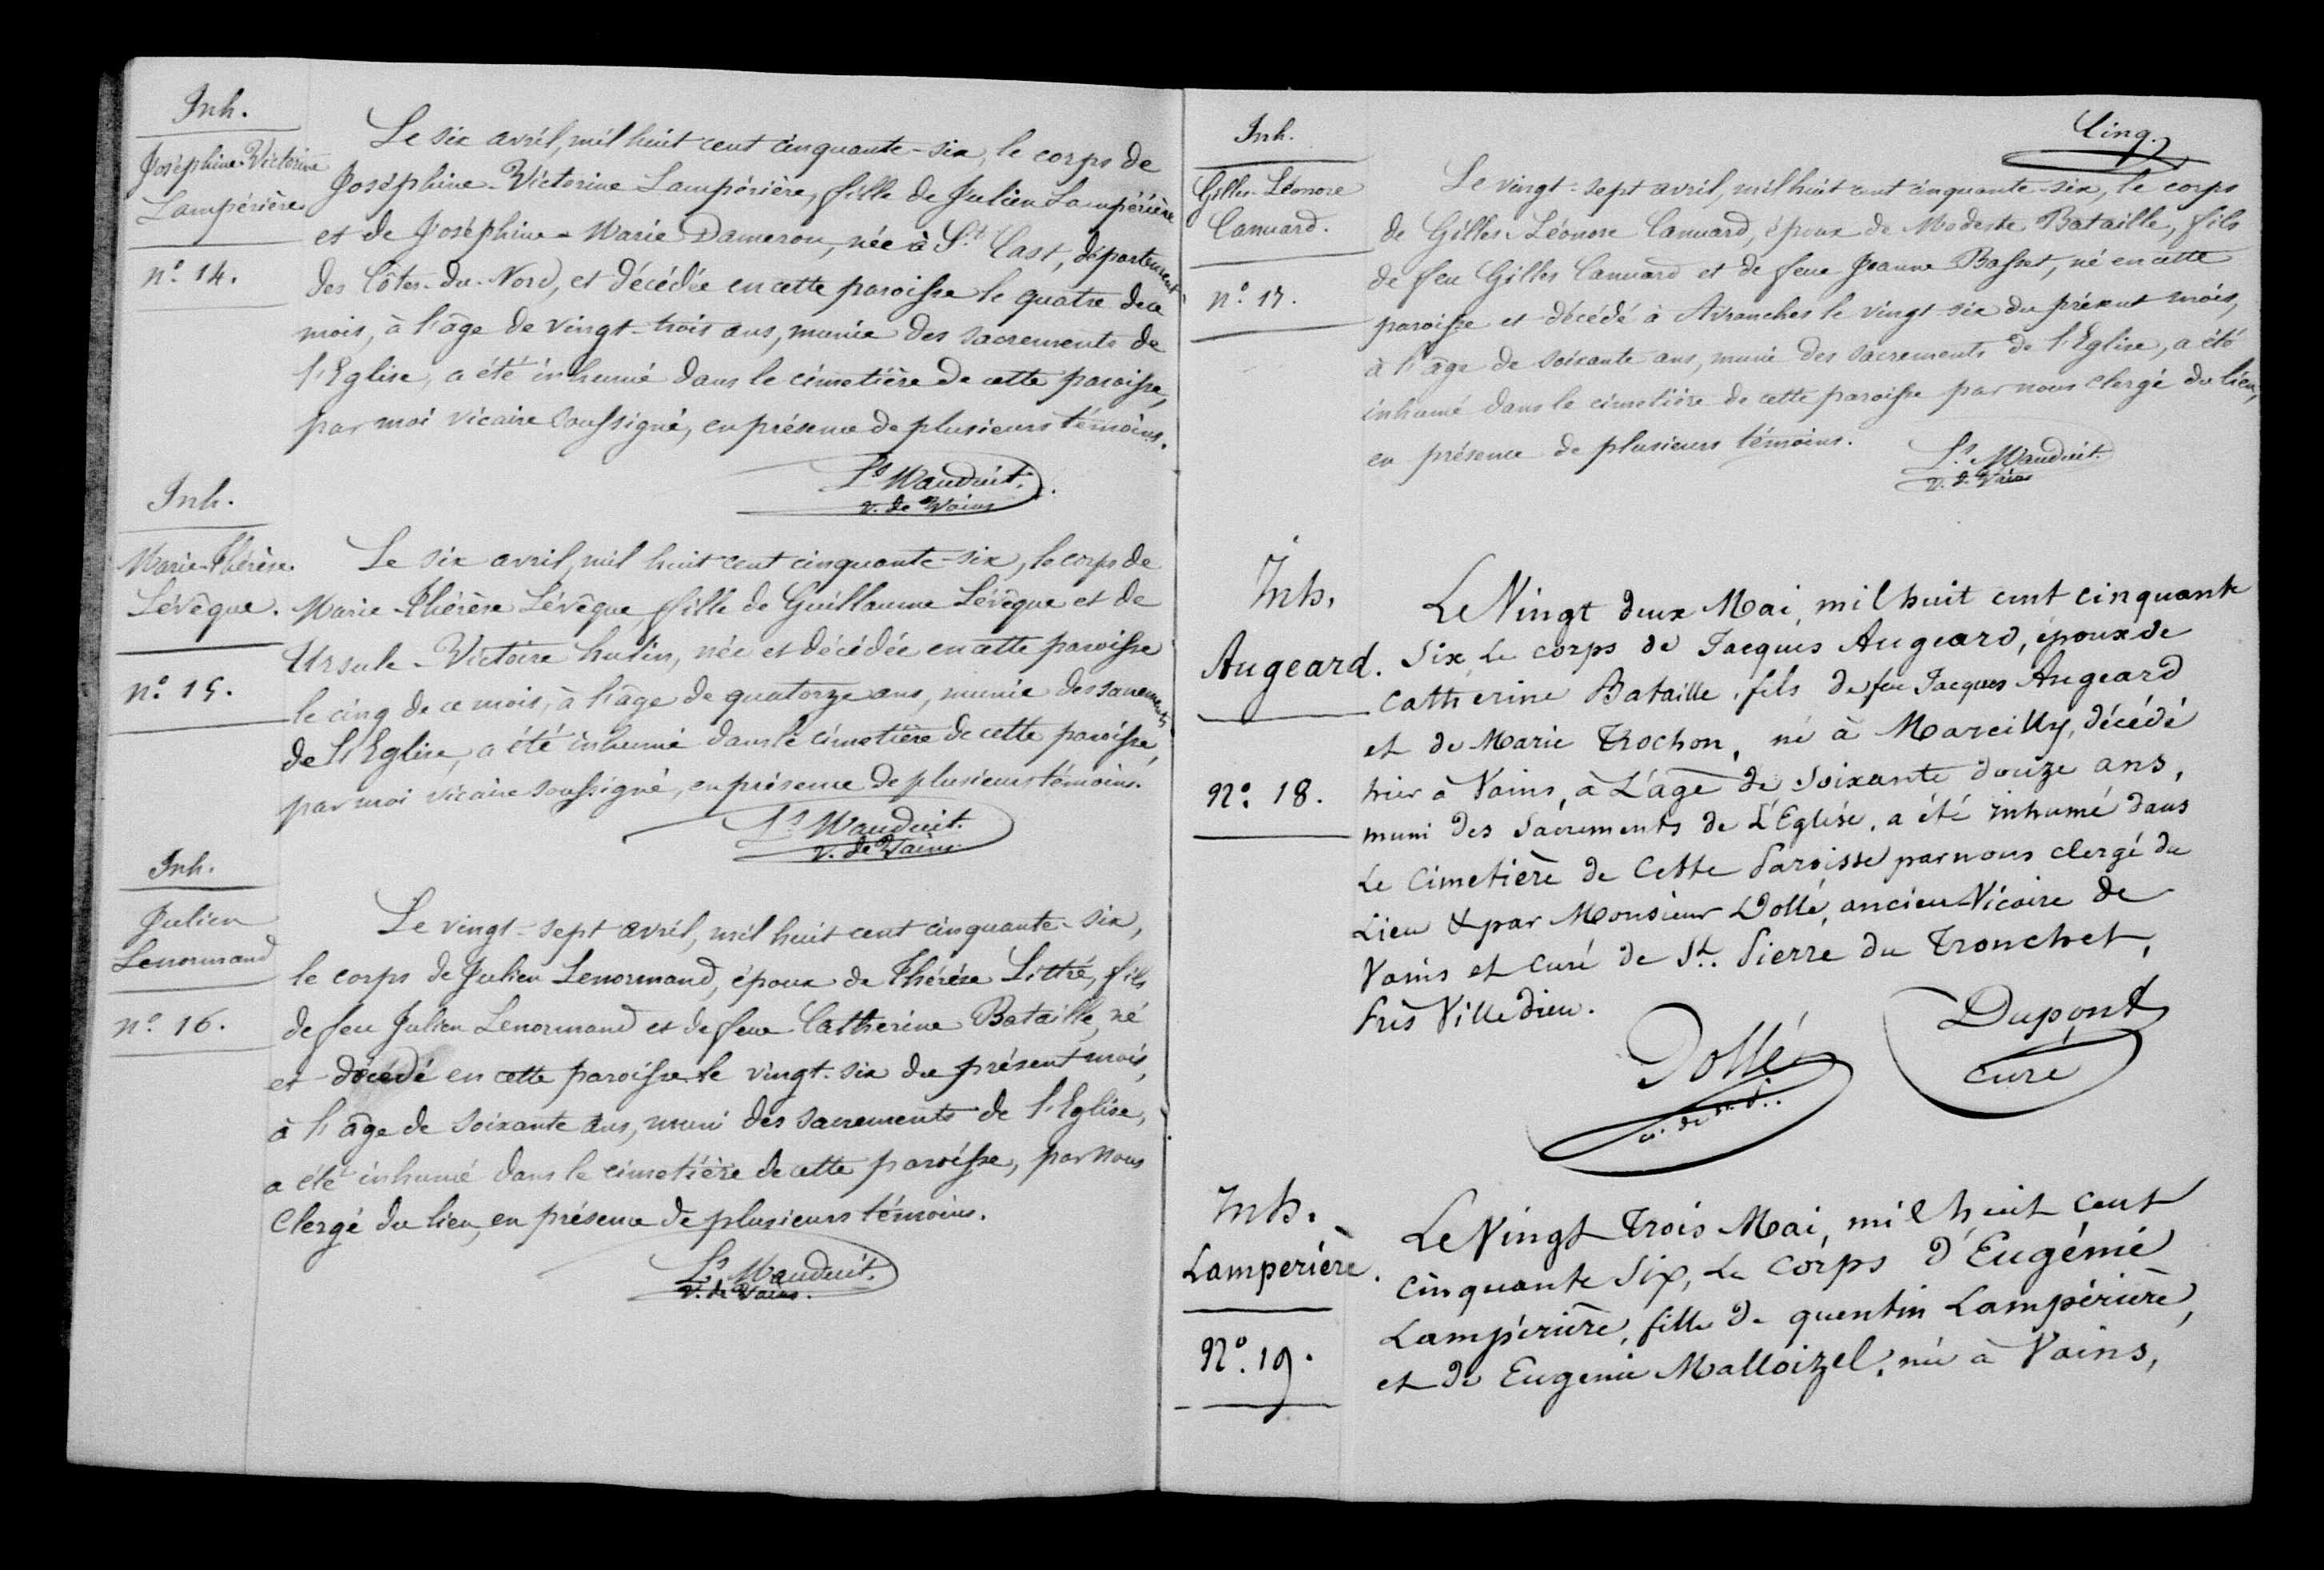 Inh.
Joséphine-Victorine
Lampérière.
nº. 14.
Le six avril, mil huit cent cinquante-six, le corps de
Joséphine-Victorine Lampérière, fille de Julien Lampérière
et de Joséphine-Marie Dameron, née à St. Cast, département
des Côtes-du-Nord, et décédée en cette paroisse le quatre de ce
mois, à l'âge de vingt-trois ans, munie des sacrements de
l'Eglise, a été inhumé dans le cimetière de cette paroisse,
par moi vicaire soussigné, en présence de plusieurs témoins.
Ls Mauduit.
v. de Vains
Inh.
Marie-Thérèse
Lévêque.
nº. 15.
Le six avril, mil huit cent cinquante-six, le corps de
Marie-Thérèse Lévêque, fille de Guillaume Lévêque et de
Ursule-Victoire hulin, née et décédée en cette paroisse
le cinq de ce mois, à l'âge de quatorze ans, munie des sacrements
de l'Eglise, a été inhumé dans le cimetière de cette paroisse,
par moi vicaire soussigné, en présence de plusieurs témoins.
Ls Mauduit.
v. de Vains.
Inh.
Julien
Lenormand
nº. 16.
Le vingt-sept avril, mil huit cent cinquante-six,
le corps de Julien Lenormand, époux de Thérèse Littré, fils
de feu Julien Lenormand et de feue Catherine Bataille, né
et décédé en cette paroisse le vingt-six du présent mois,
à l'âge de soixante ans, muni des sacrements de l'Eglise,
a été inhumé dans le cimetière de cette paroisse, par nous
Clergé du lieu, en présence de plusieurs témoins.
Ls Mauduit.
v. de Vains.
Cinq.
Inh.
Gilles-Léonore
Canuard.
nº. 17.
Le vingt-sept avril, mil huit cent cinquante-six, le corps
de Gilles-Léonore Canuard, époux de Modeste Bataille, fils
de feu Gilles Canuard et de feue Jeanne Basset, né en cette
paroisse et décédé à Avranches le vingt-six du présent mois,
à l'âge de soixante ans, muni des sacrements de l'Eglise, a été
inhumé dans le cimetière de cette paroisse par nous clergé du lieu,
en présence de plusieurs témoins.
Ls. Mauduit.
v. d. Vains
Inh.
Augeard.
Nº. 18.
Le Vingt deux Mai, mil huit cent cinquante
Six Le corps de Jacques Augeard, époux de
Catherine Bataille, fils de feu Jacques Augeard
et de Marie Trochon, né à Marcilly, décédé
hier à Vains, à L'âge de Soixante douze ans,
muni des Sacrements de L'Eglise, a été inhumé dans
Le Cimetière de Cette Paroisse par nous clergé du
Lieu & par Monsieur Dollé, ancien Vicaire de
Vains et Curé de St. Pierre du Tronchet,
Près Villedieu.
Dollé
Dupont
curé
Inh.
Lamperière.
Nº. 19.
Le Vingt Trois Mai, mil huit cent
Cinquante Six, Le Corps d'Eugénie
Lampérière, fille de quentin Lampérière,
et de Eugenie Malloizel, née à Vains,